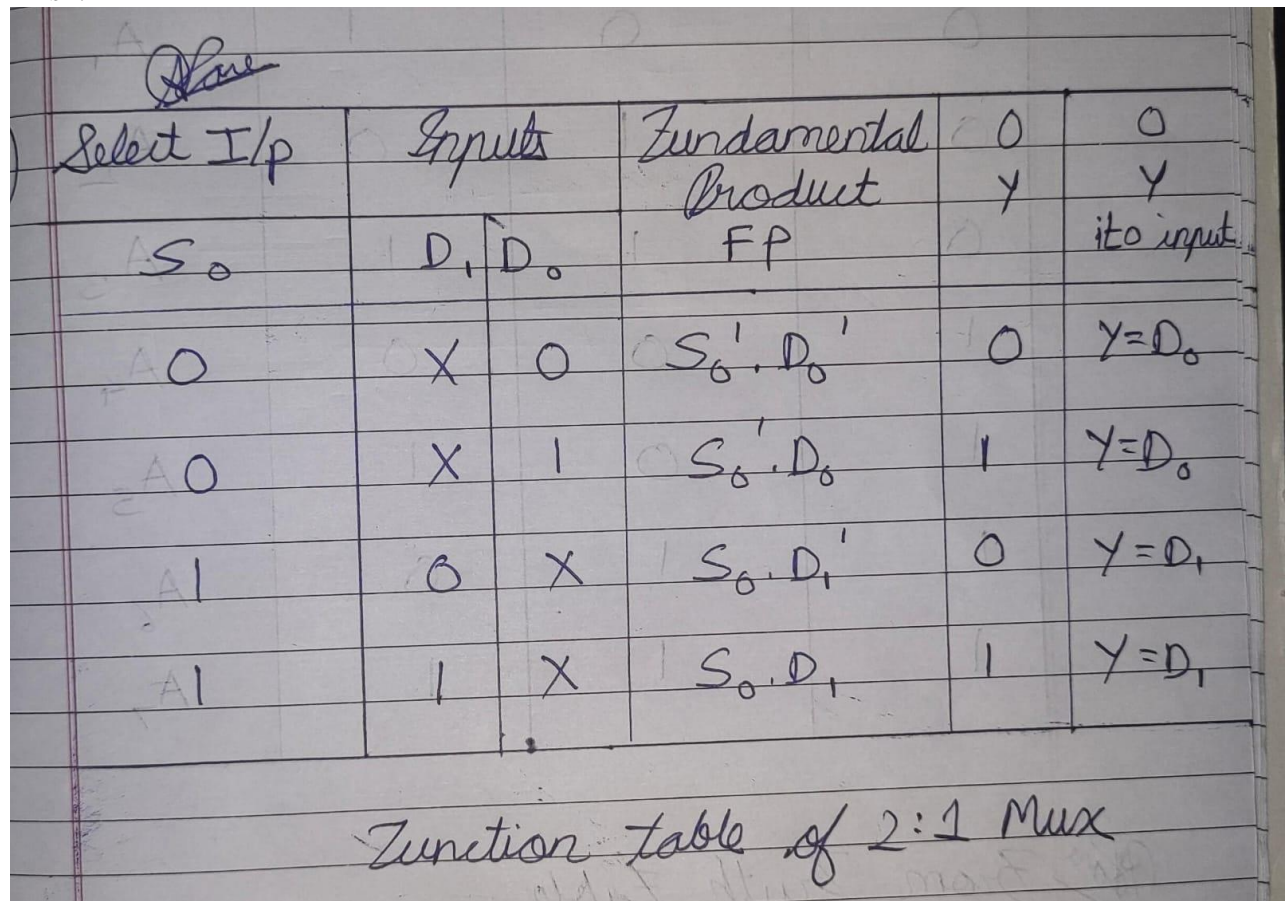 Select I/p | Inputs | Fundamental Product FP | O Y | O Y ito input
S₀ | D₁ | D₀
0 | X | 0 | S₀'. D₀' | 0 | Y=D₀
0 | X | 1 | S₀'. D₀ | 1 | Y=D₀
1 | 0 | X | S₀. D₁' | 0 | Y=D₁
1 | 1 | X | S₀. D₁ | 1 | Y=D₁
Function table of 2:1 Mux